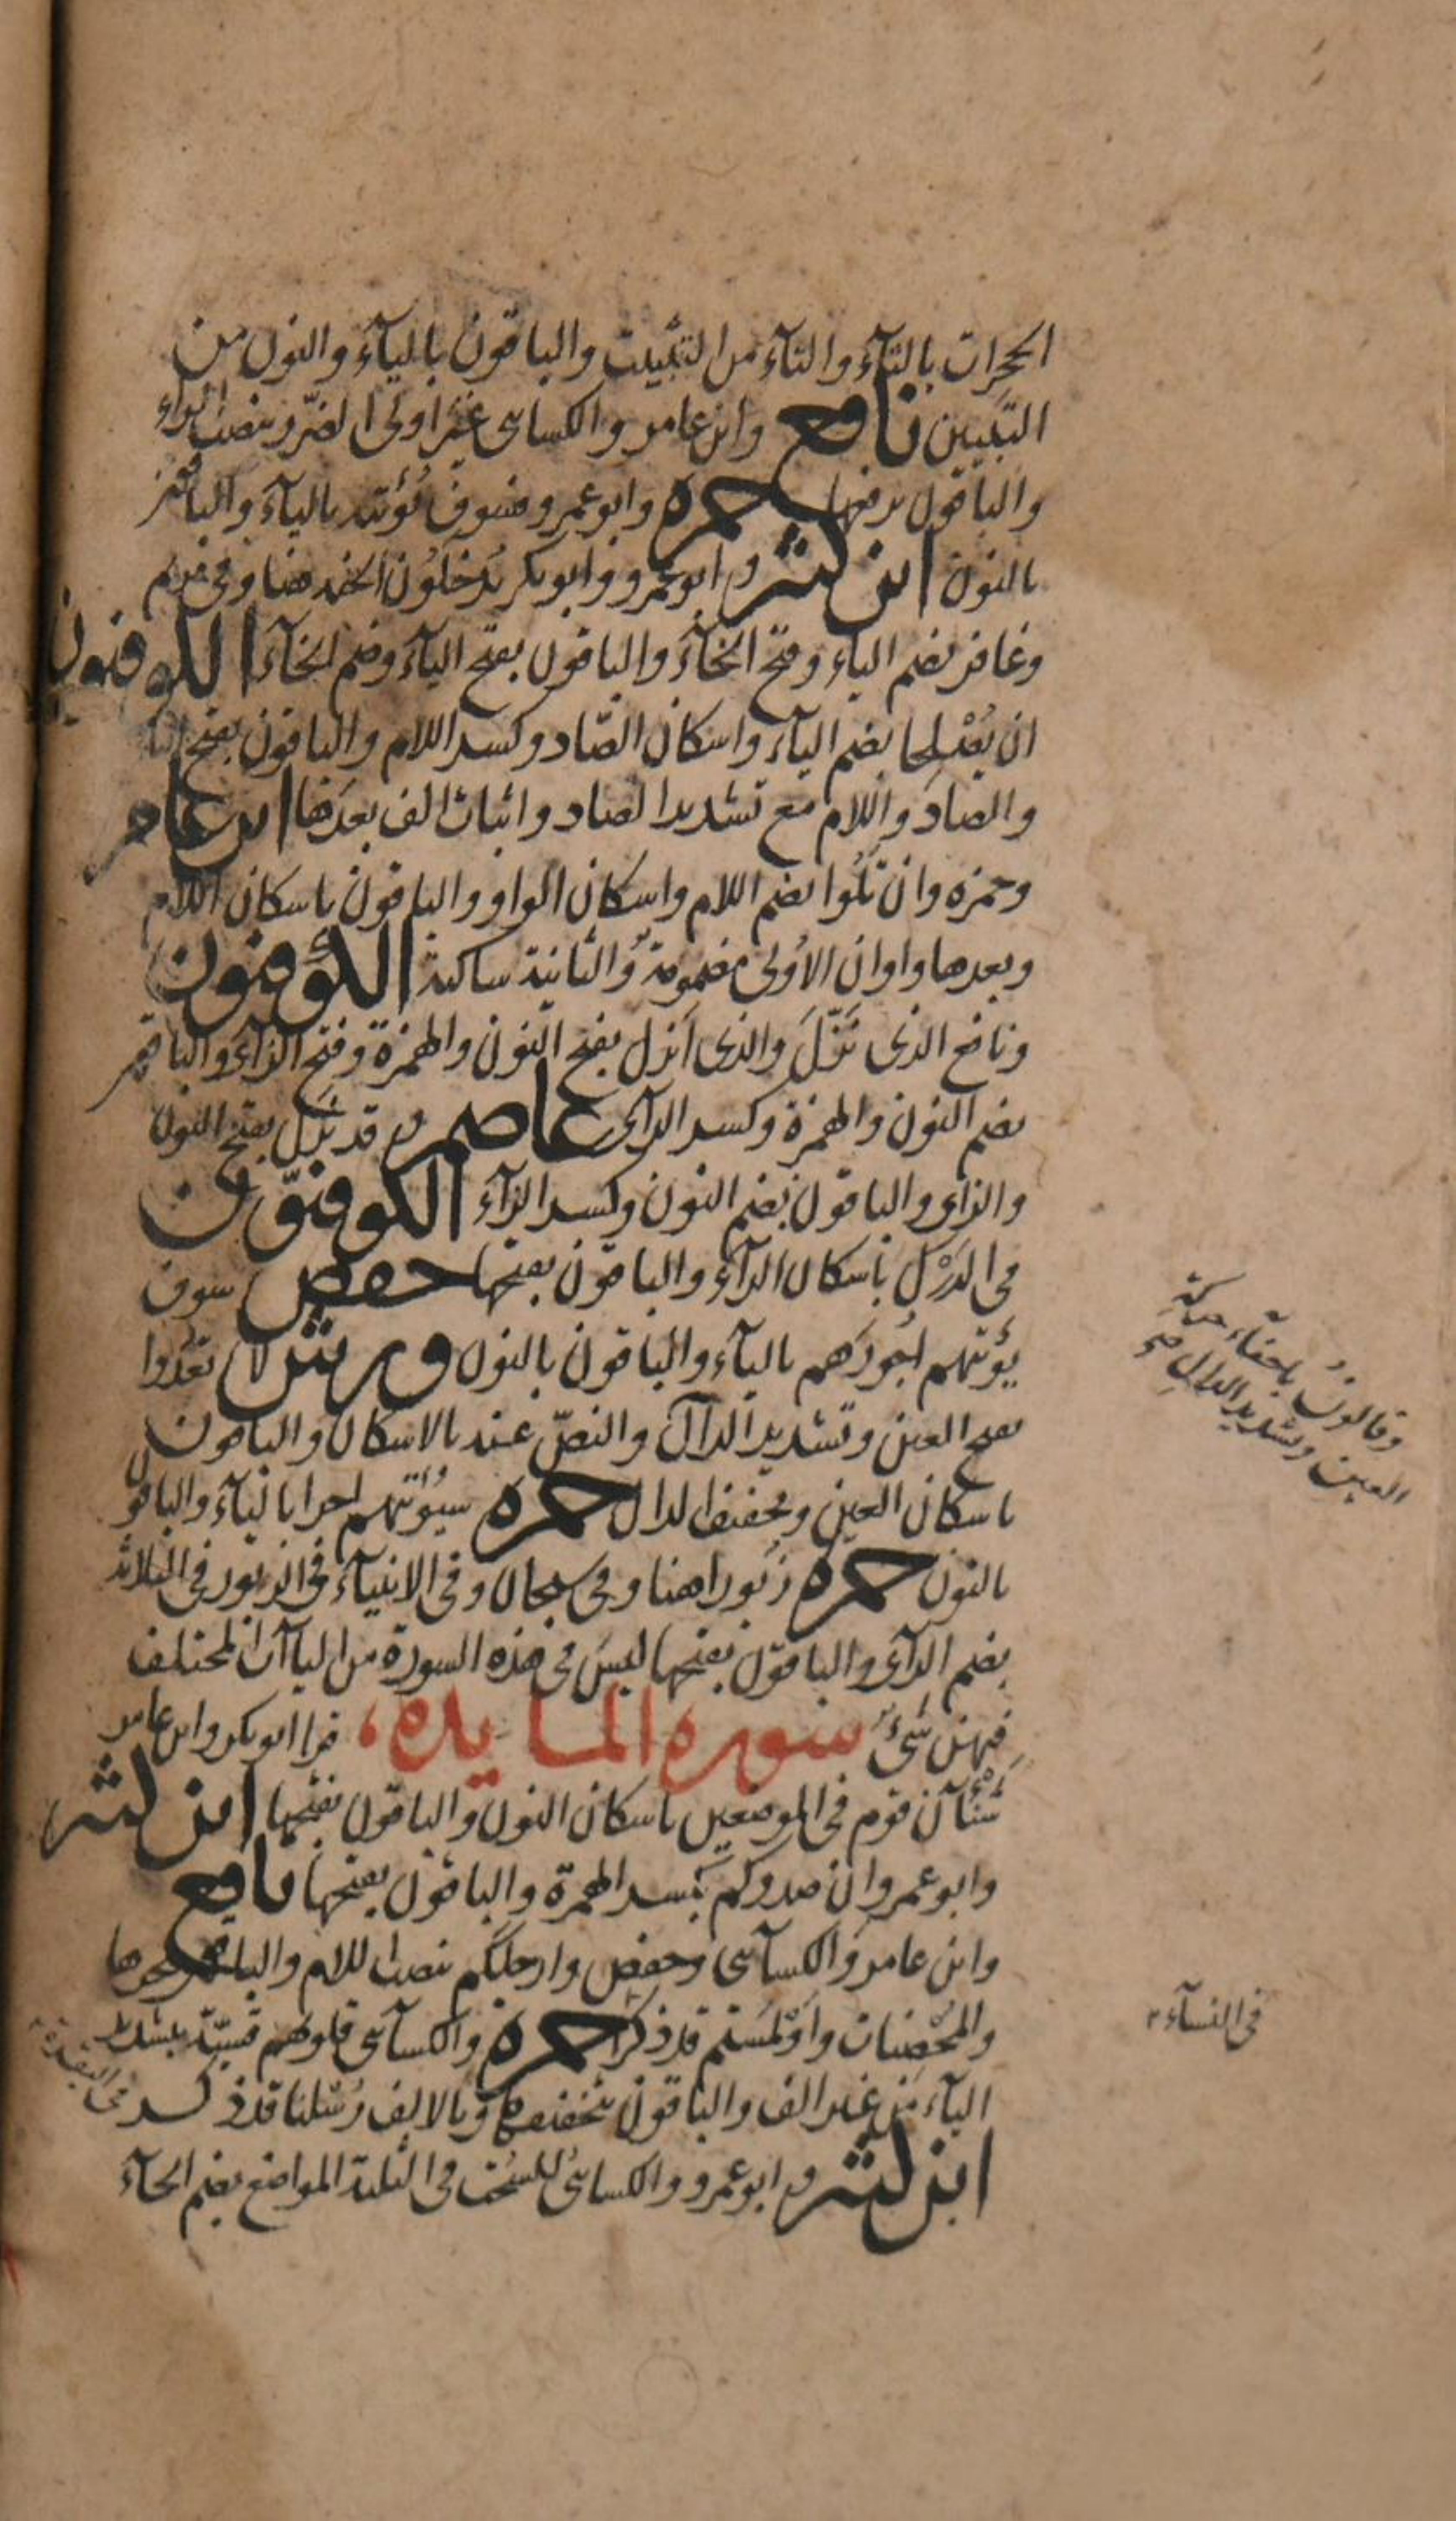 الحجرات بالثآء والتآء من التثبيت والباقون باليآء والنون من
التبيين نافع وابن عامر والكسائى غير اولى الضرر بنصب الراء
والباقون برفعها حمزه وابو عمرو فسوف يؤتيه باليآء والباقون
بالنون ابن كثير وابو عمرو وابو بكر يُدخَلُون الجنه هنا وفى مريم
وغافر بضم الياء وفتح الخآء والباقون بفتح اليآء وضم الخآء الكوفيون
ان يُصْلِحا بضم اليآء واسكان الصّاد وكسر اللام والباقون بفتح اليا
والصاد واللام مع تشديد الصاد واثبات الف بعدها ابن عامر
وحمزه وان تَلُوا بضم اللام واسكان الواو والباقون باسكان اللام
وبعدها واوان الاُولى مضمومة والثانية ساكنة الكوفيون
ونافع الذى نَزّلَ والذى اَنزل بفتح النون والهمزة وفتح الزآء والباقون
بضم النون والهمزة وكسر الزآى عاصم وقد نَزَّل بفتح النون
والزاى والباقون بضم النون وكسر الزآء الكوفيّون
فى الدَرْك باسكان الرآء والباقون بفتحها حفص سوف
يؤتيهم اُجورَهم باليآء والباقون بالنون ورش لا تعَدُّوا
بفتح العين وتشديد الدال والنصّ عنه بالاسكان والباقون
باسكان العين وتخفيف الدال حمزه سيُؤتيهم اجرا باليآء والباقون
بالنون حمزه زُبورا هنا وفى سبحان وفى الانبيآء فى الزبور فى الثلاثة
بضم الزآى والباقون بفتحها ليسَ فى هذه السورة من الياآت المختلف
فيهن شىءٌ سورة المايده، قرا ابو بكر وابن عامر
شَنْآن قوم فى الموضعين باسكان النون والباقون بفتحها ابن كثير
وابو عمرو ان صدوكم بكسر الهمزة والباقون بفتحها نافع
وابن عامر والكسآئى وحفص وارجلكم بنصب اللام والباقون بجرها
والمُحْصنات واَوْلمستم قد ذكرا حمزه والكسآئى قلوبهم قسيّة بتشديد
اليآء من غير الف والباقون بتخفيفها وبالالف رُسْلنا قد ذكر فى البقرة
ابن كثير وابو عمرو والكسائى للسُحُت فى الثلثة المواضع بضم الحآء
وقالونُ باخفآء حركة
العين وتشديد الدال صح
فى النسآء